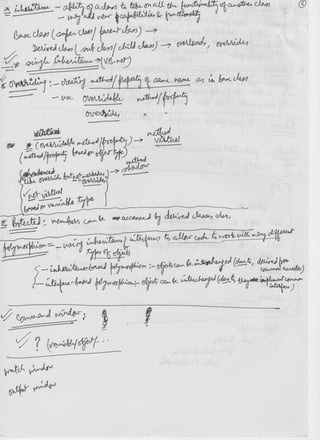 * inheritance - ability of a class to take on all the functionality of another class
- may add new capabilities & functionality
Base class (super class/ parent class) →
Derived class (sub class/ child class) → overloads, overrides
* single inheritance → (VB.net)
* overriding :- creating method/property of same name as in base class
- use overridable method/property
overrides " "
virtual
* (overridable method/property) → method virtual
(method/property based on object type)
(shadowed
like override but not marked as override) → method shadow
not virtual
based on variable type
* Protected : members can be accessed by derived classes also.
polymorphism = - using inheritance/ interfaces to allow code to work with many different
types of objects
- inheritance based polymorphism :- objects can be interchanged (clients, derived from
common ancestor)
- interface-based polymorphism :- objects can be interchanged (clients, they implement common
interface)
command window :
? (variable/object/...
watch window
output window